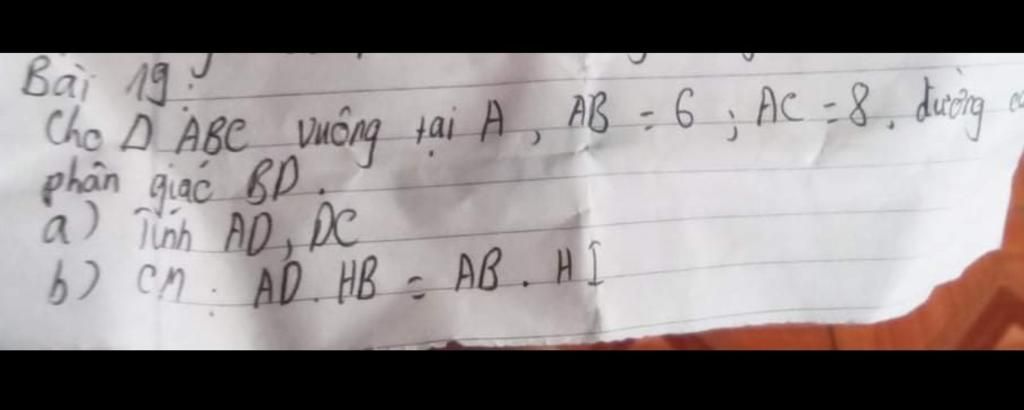 Bài 19:
Cho Δ ABC vuông tại A, AB = 6 ; AC = 8, đường
phân giác BD.
a) Tính AD, DC
b) CM: AD . HB = AB . HI